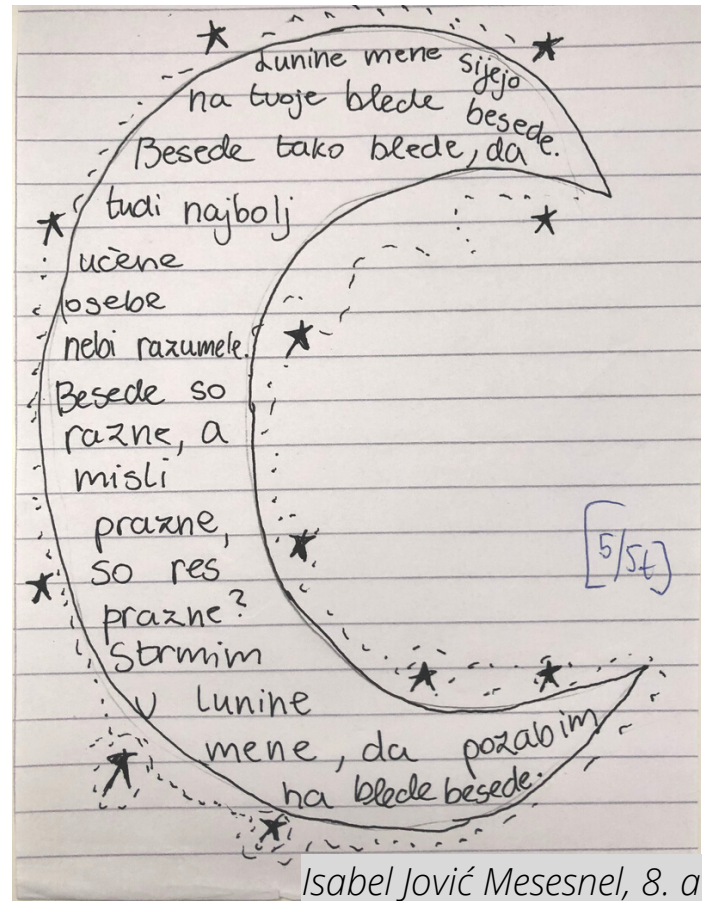 Lunine mene sijejo
na tvoje blede besede.
Besede tako blede, da
tudi najbolj
učene
osebe
nebi razumele.
Besede so
razne, a
misli
prazne,
so res
prazne?
Strmim
v lunine
mene, da pozabim
na blede besede.
[5/5t]
Isabel Jović Mesesnel, 8. a